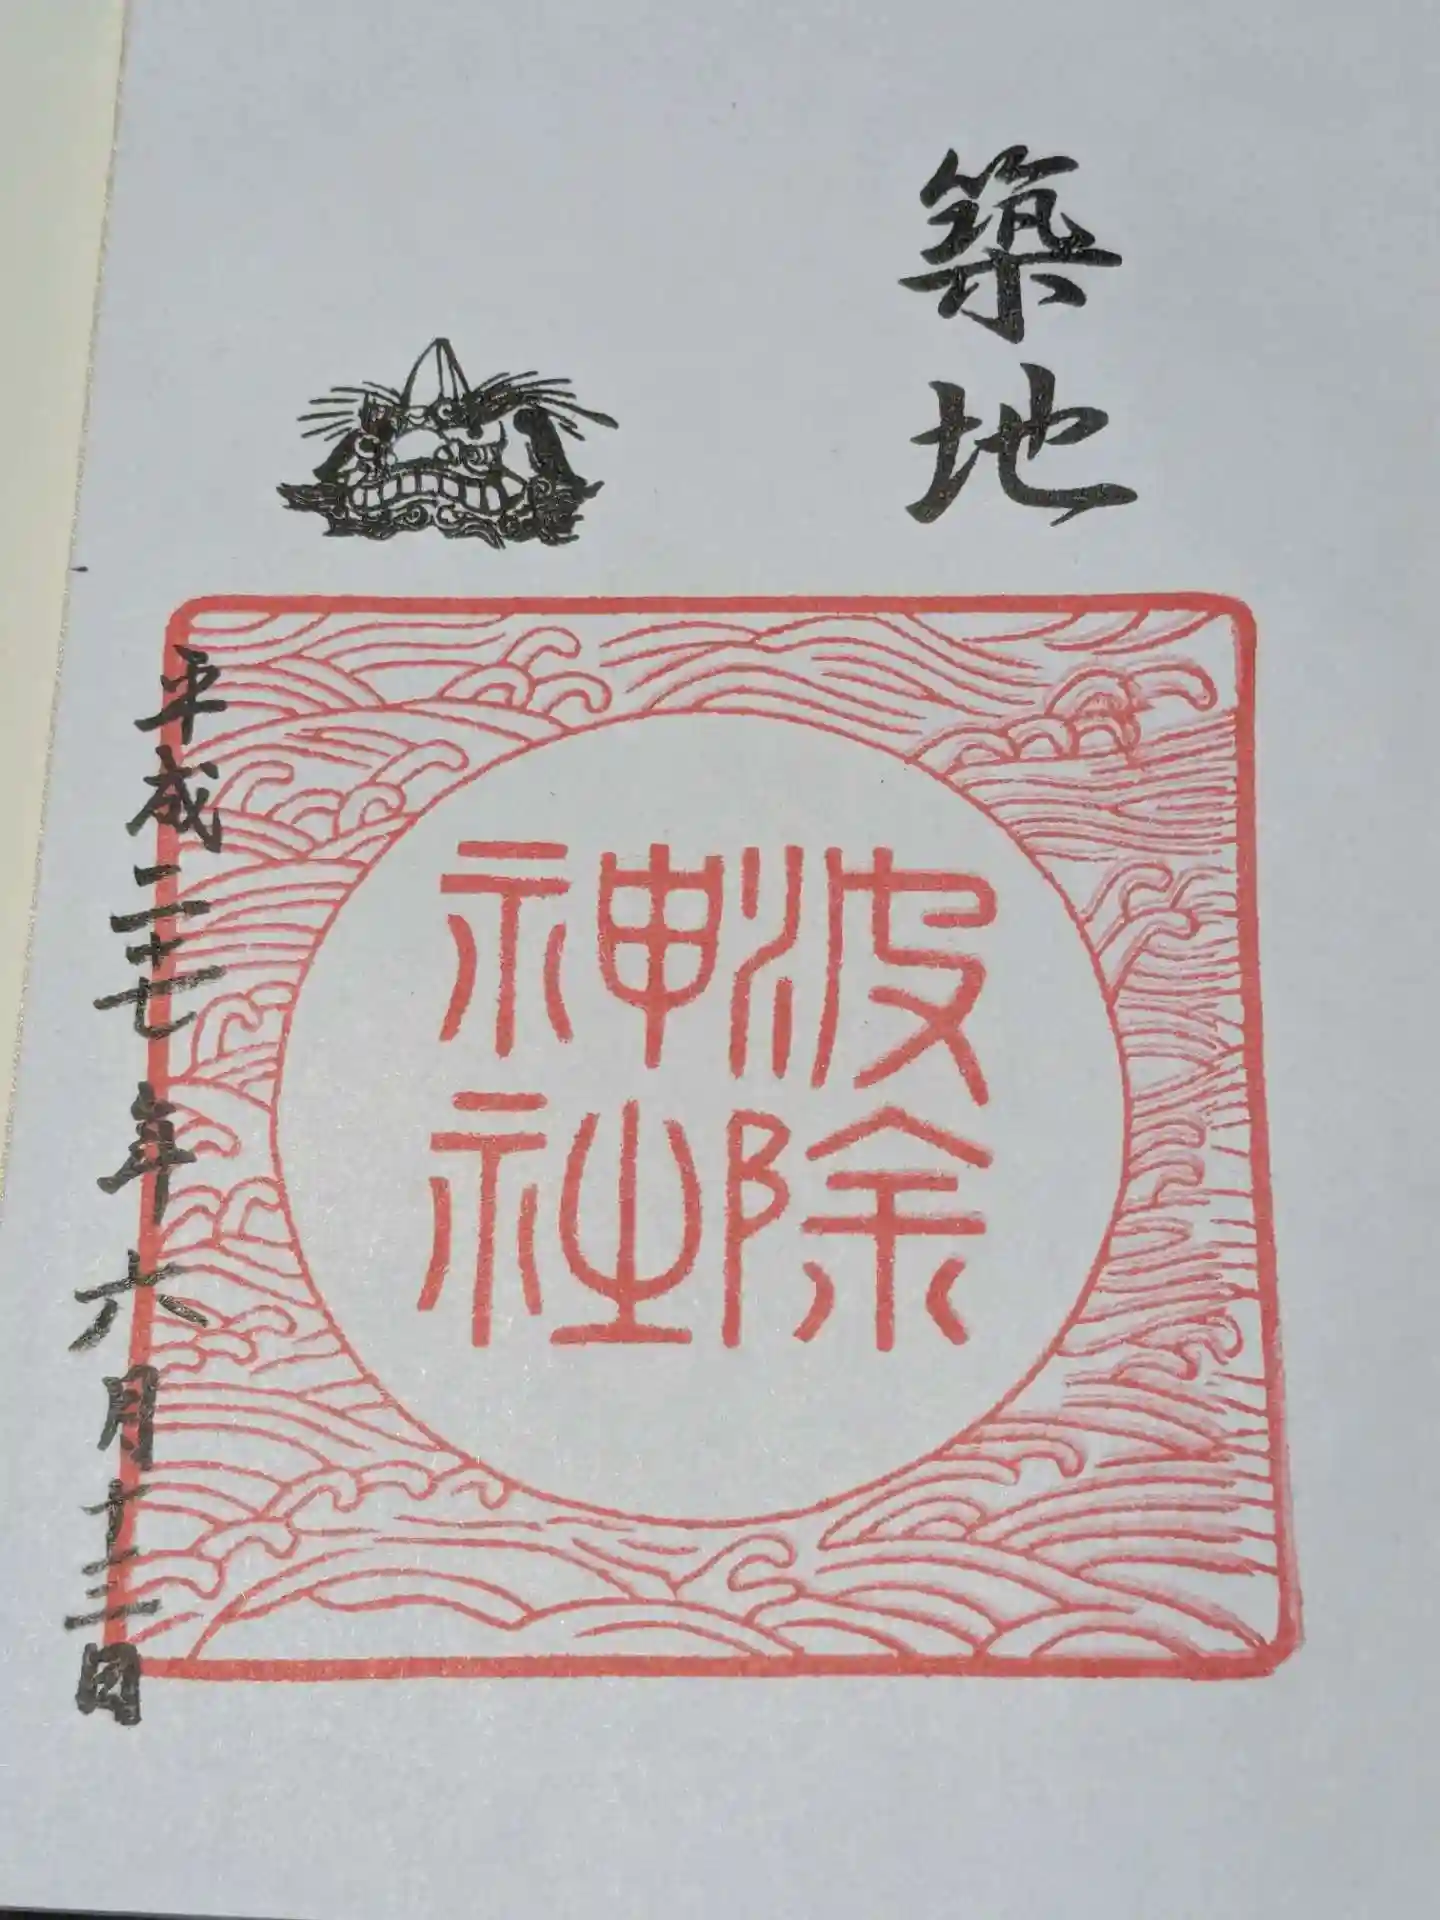 築地
波除
神社
平成二十七年六月十三日